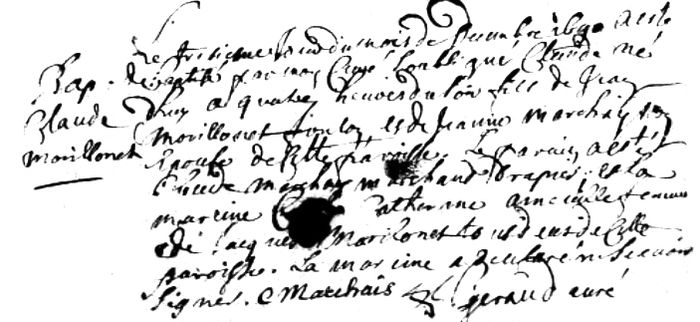 Le troisieme jour du mois de decembre 1690 a este
Bap. de baptisé par moy Curé soubsigné Claude né
Claude d'huy a quatre heures du soir fils de Jean
Morillonet Morillonet et de Jeanne Marchais son
épouse de cette paroisse. Le parein a esté
Claude Marchais marchand drapier et la
mareine Catherine femme
de Jacques Morillonet tous deux de cette
paroisse. La mareine a declaré ne scavoir
signer. C Marchais geraud curé